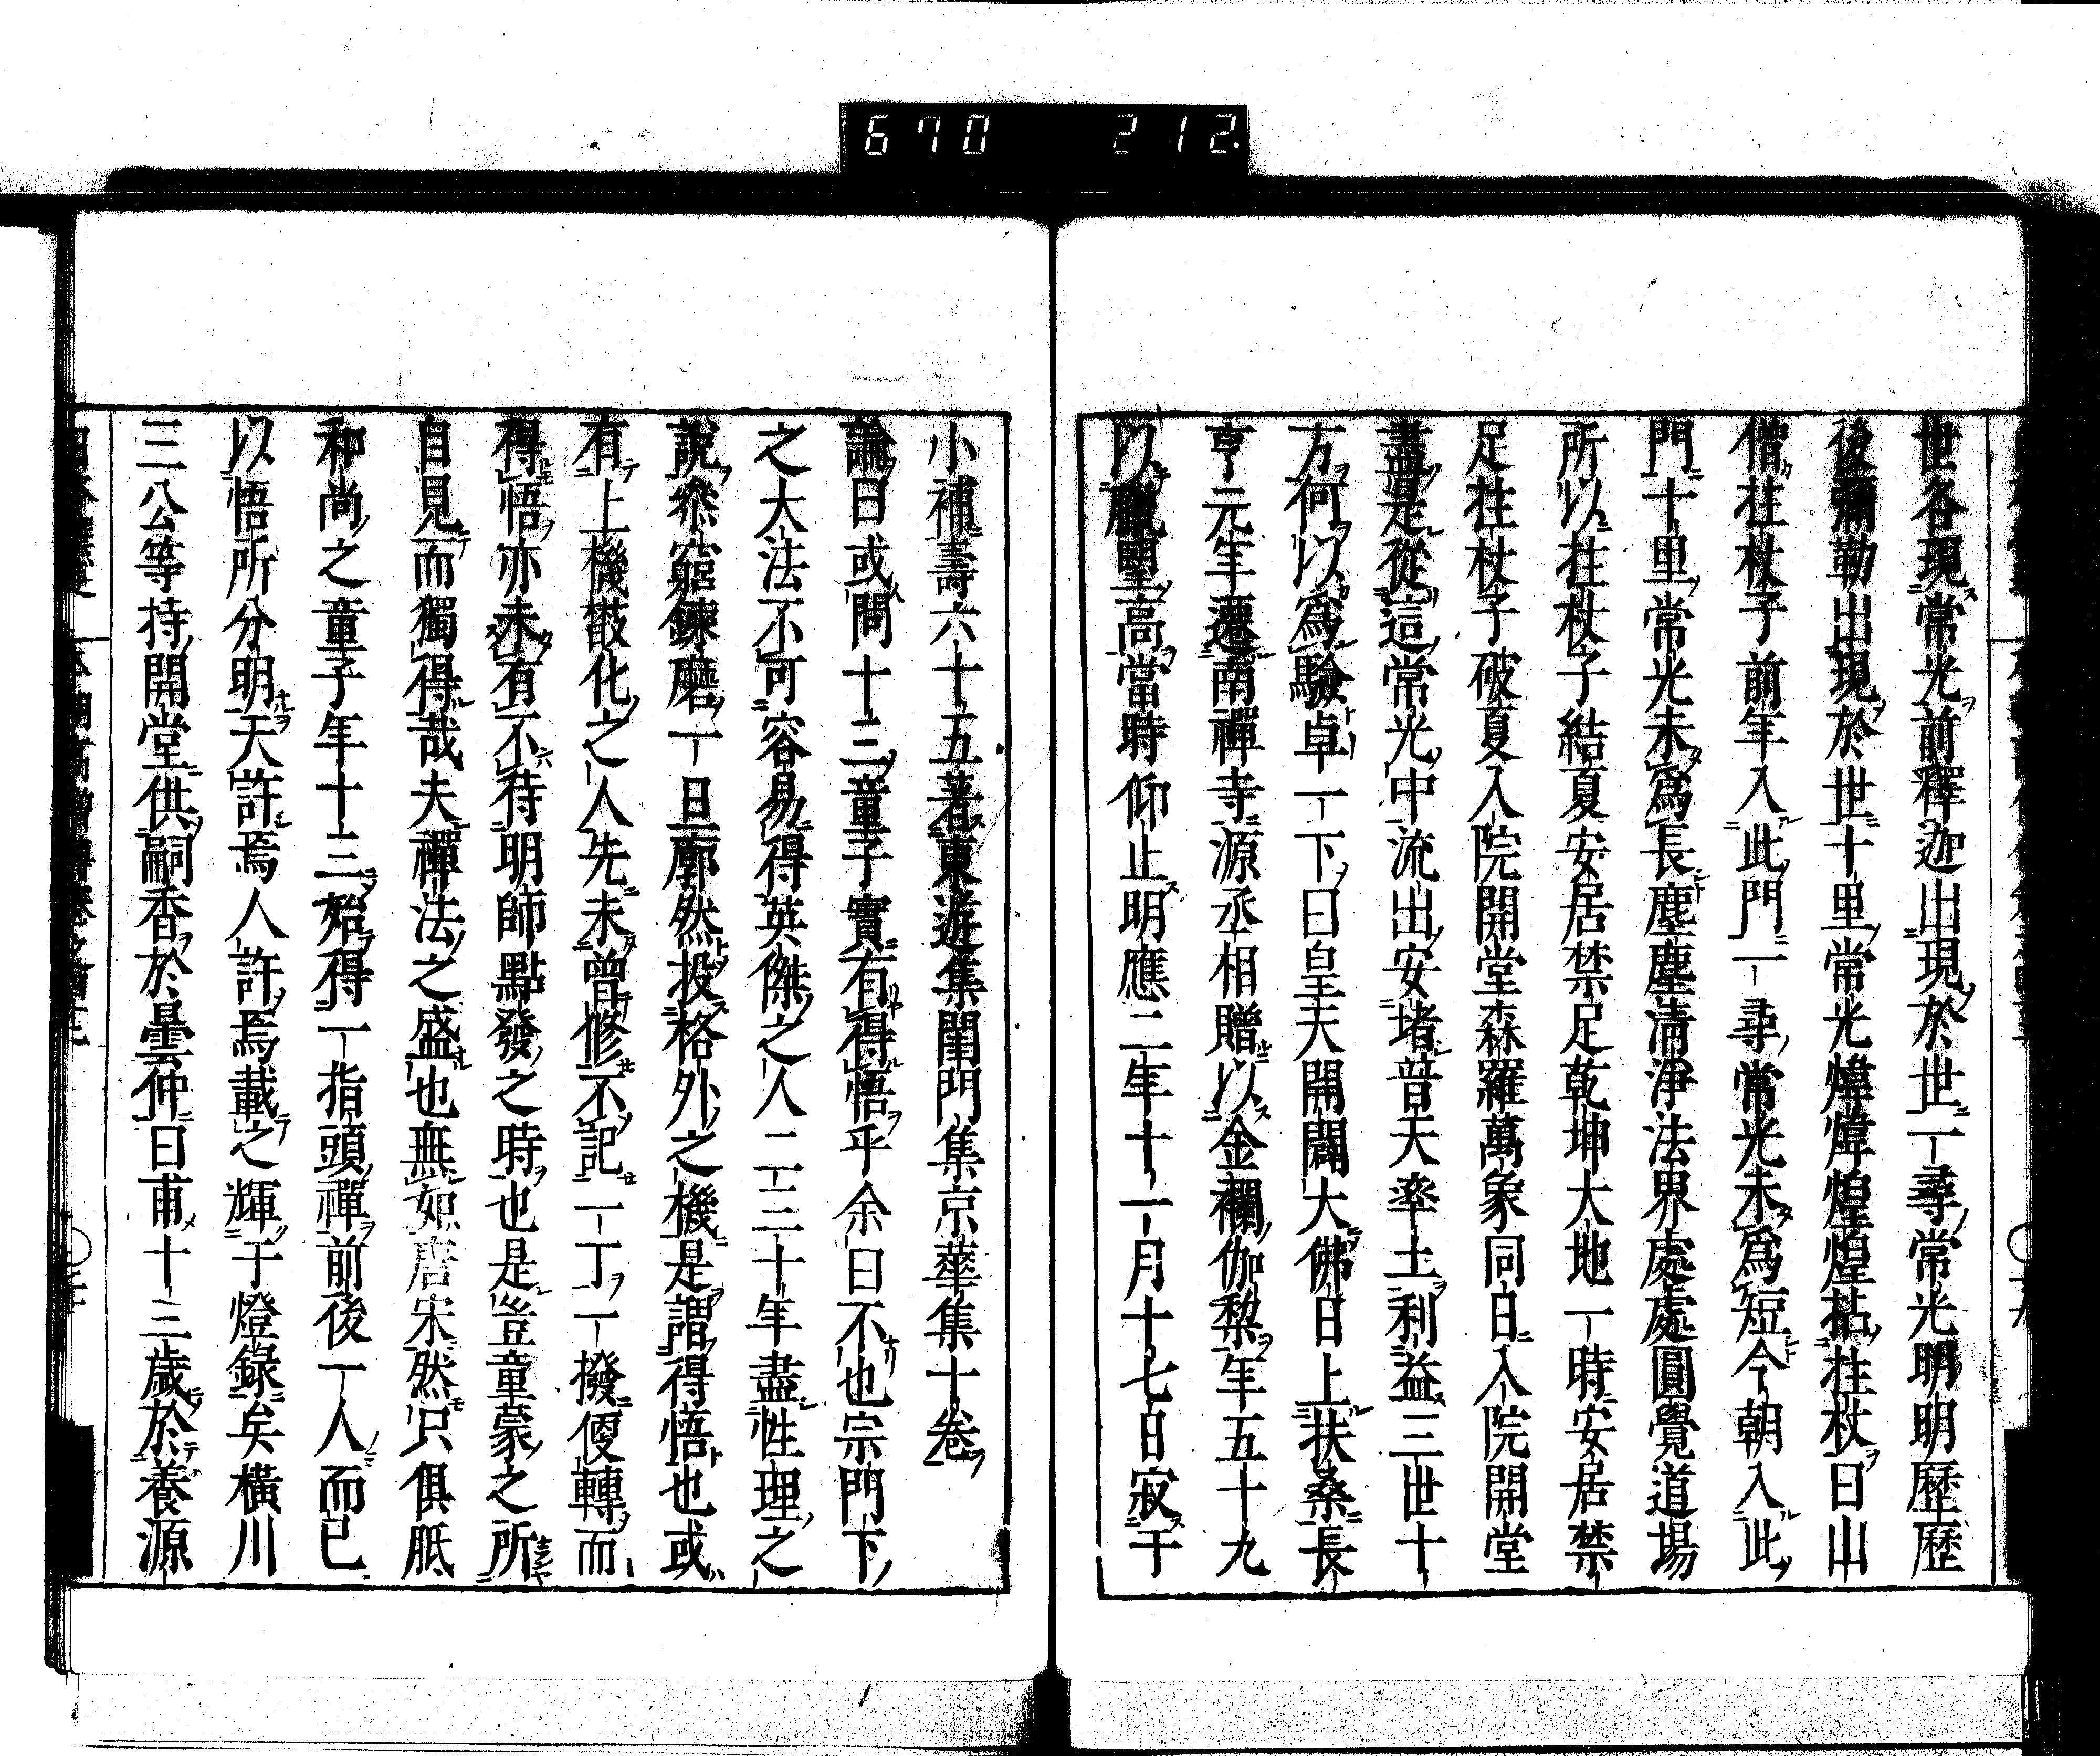 670 212.
世各現常光前釋迦出現於世一尋常光明明歷歷
後彌勒出現於世十里常光煒煒煌煌拈拄杖曰山
僧拄杖子前年入此門一尋常光未爲短今朝入此
門十里常光未爲長塵塵清淨法界處處圓覺道場
所以拄杖子結夏安居禁足乾坤大地一時安居禁
足拄杖子破夏入院開堂森羅萬象同日入院開堂
盡是從這常光中流出安堵普天率土利益三世十
方何以爲驗卓一下曰皇天開闢大佛日上扶桑長
亨元年遷南禪寺源丞相贈以金襴伽黎年五十九
以觀望高當時仰止明應二年十一月十七日寂于
小補壽六十五著東遊集閨門集京華集十卷
論曰或問十三童子實有得悟乎余曰不也宗門下
之大法不可容易得英傑之人二三十年盡性理之
說叅窮鍊磨一旦廓然投格外之機是謂得悟也或
有上機敏化之人先未曾修不記一丁一撥便轉而
得悟亦未有不待明師點發之時也是豈童蒙之所
自見而獨得哉夫禪法之盛也無如唐宋然只俱胝
和尚之童子年十三始得一指頭禪前後一人而已
以悟所分明天許焉人許焉載之輝于燈錄矣橫川
三公等持開堂供嗣香於曇仲曰甫十三歲於養源